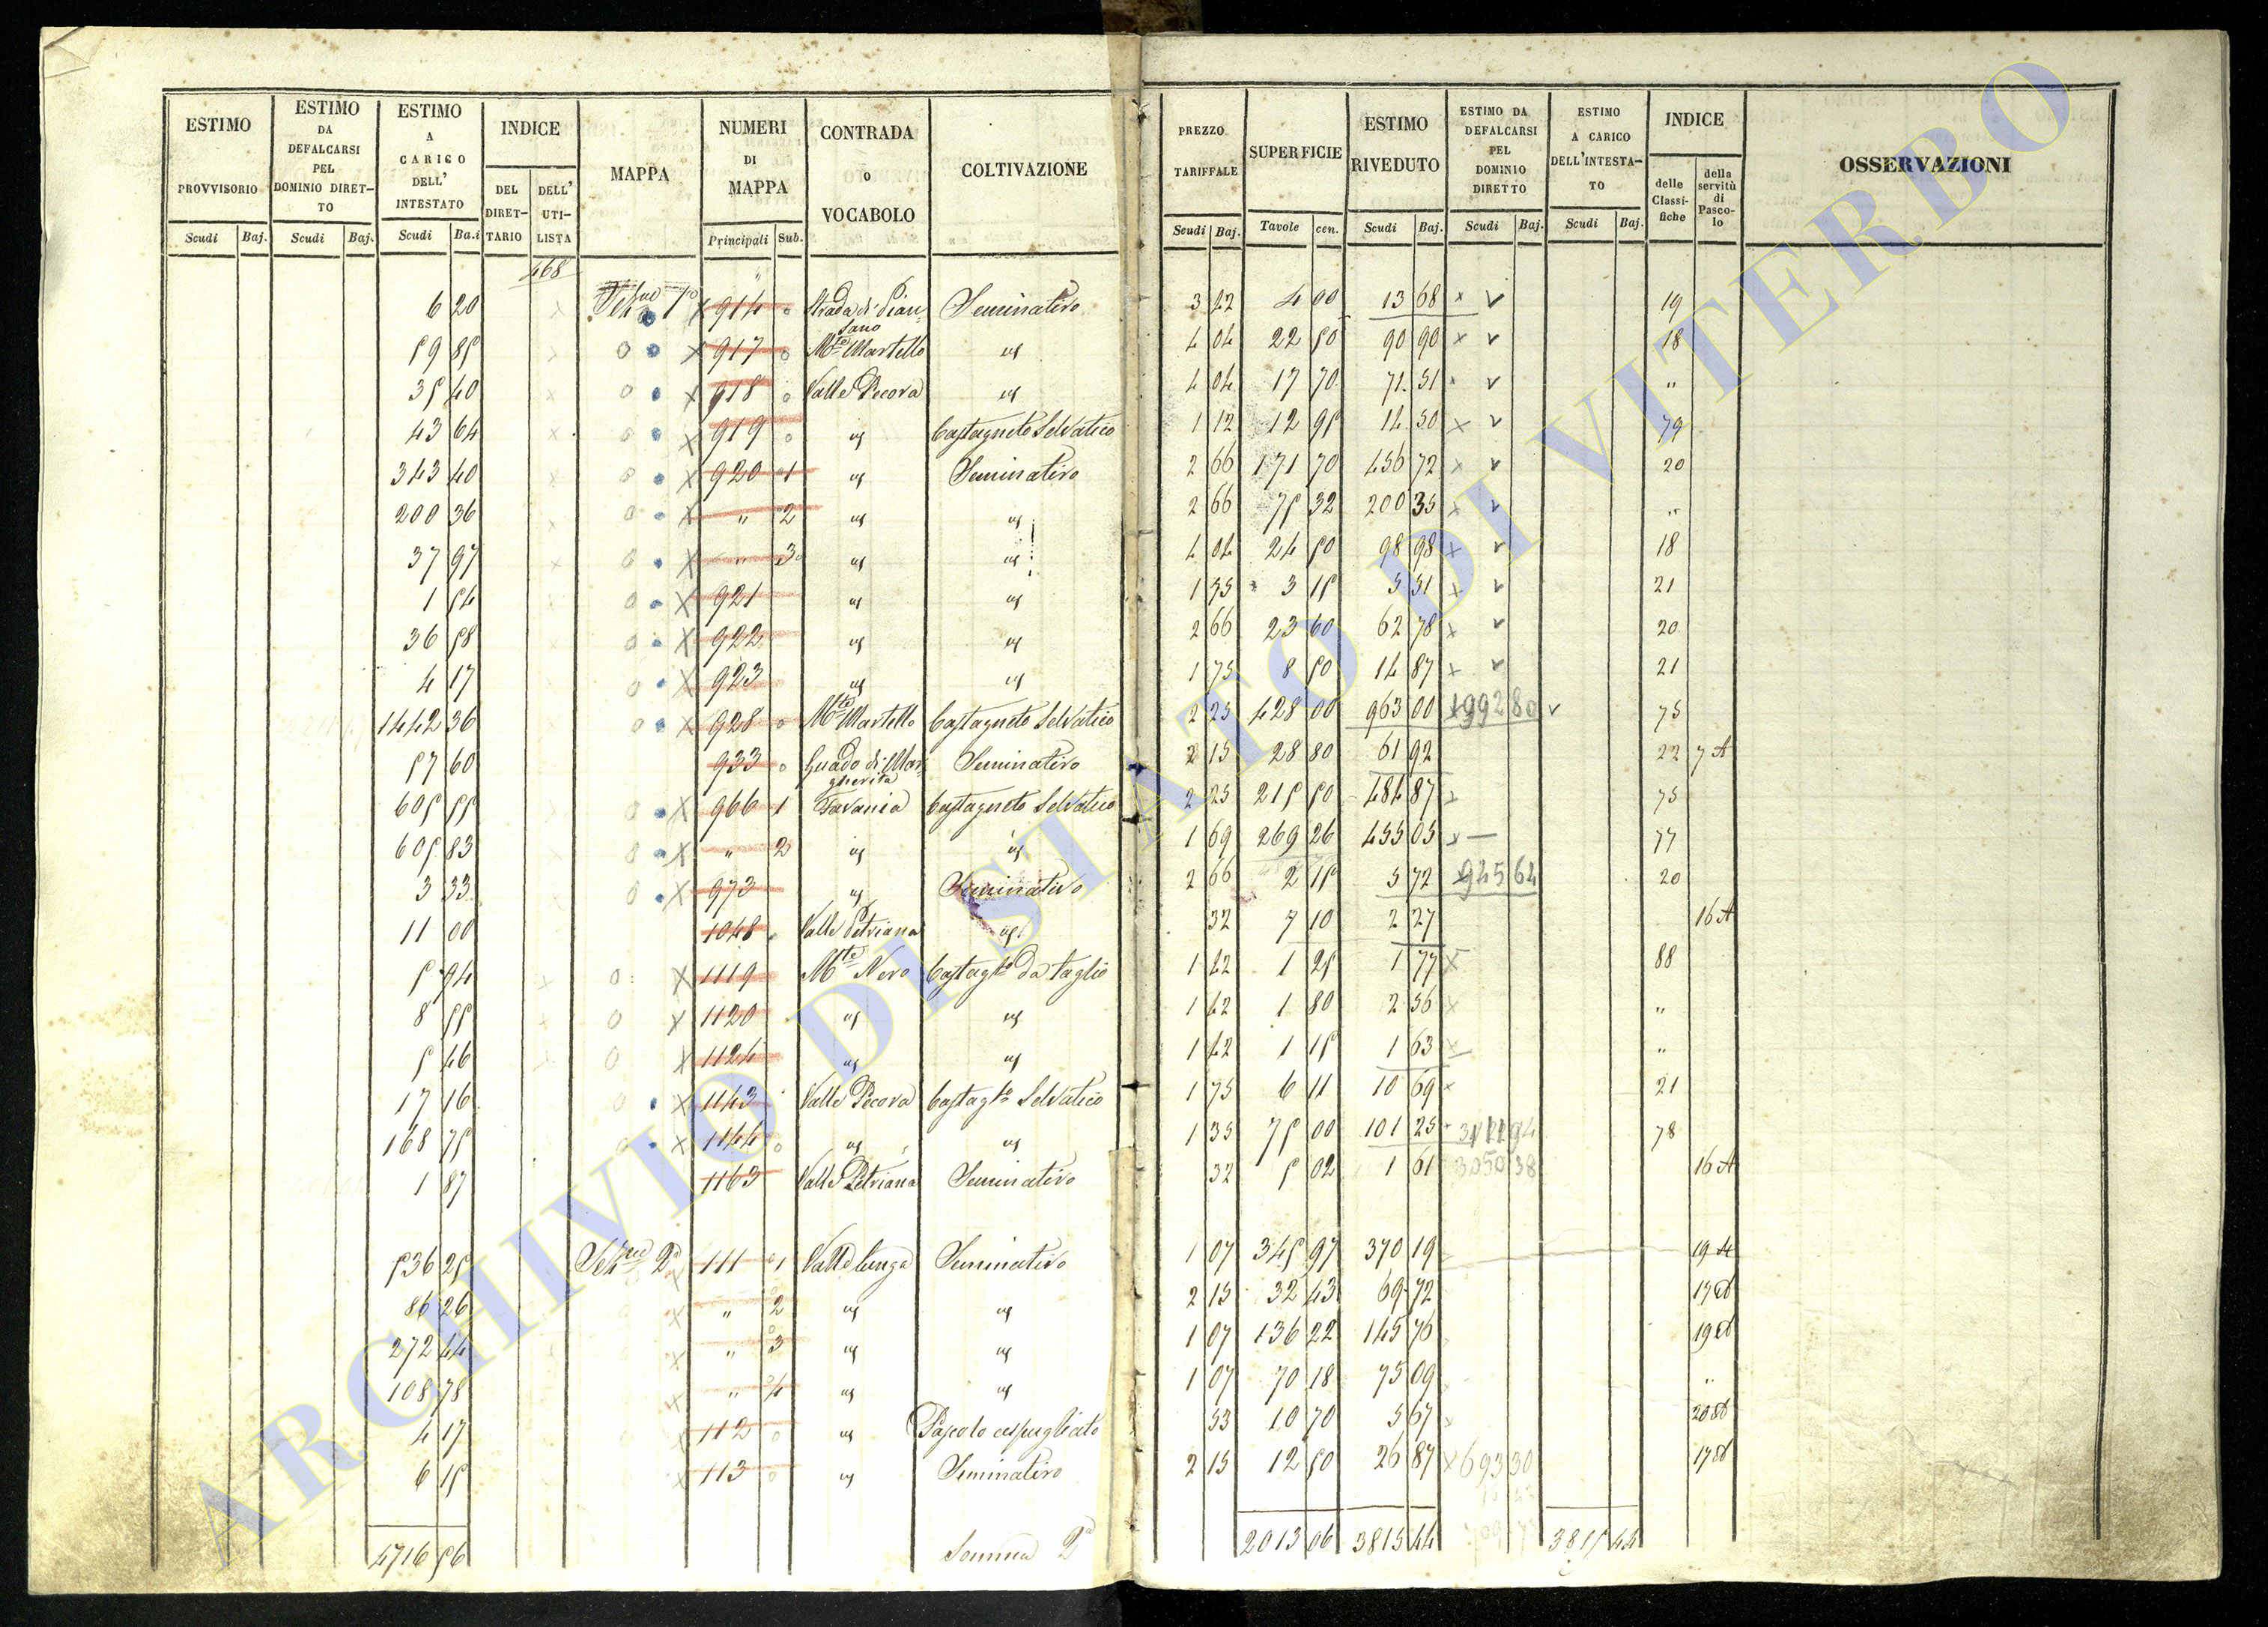 ESTIMO PROVVISORIO Scudi Baj.
ESTIMO DA DEFALCARSI PEL DOMINIO DIRETTO Scudi Baj.
ESTIMO A CARICO DELL' INTESTATO Scudi Ba.i
INDICE DEL DIRETTARIO DELL' UTILISTA
MAPPA
NUMERI DI MAPPA Principali Sub.
CONTRADA o VOCABOLO
COLTIVAZIONE
PREZZO TARIFFALE Scudi Baj.
SUPERFICIE Tavole cen.
ESTIMO RIVEDUTO Scudi Baj.
ESTIMO DA DEFALCARSI PEL DOMINIO DIRETTO Scudi Baj.
ESTIMO A CARICO DELL'INTESTATO Scudi Baj.
INDICE delle Classifiche della servitù di Pascolo
OSSERVAZIONI
468
6 20 914 Strada di Piansano Seminativo 3 42 4 00 13 68 19
59 85 917 Mte Martello id 4 04 22 50 90 90 18
35 40 918 Valle Pecora id 4 04 17 70 71 51 "
43 64 919 id Castagneto Selvatico 1 12 12 95 14 50 79
343 40 920 1 id Seminativo 2 66 171 70 456 72 20
200 36 " 2 id id 2 66 75 32 200 35 "
37 97 " 3 id id 4 04 24 50 98 98 18
1 54 921 id id 1 75 3 15 5 51 21
36 58 922 id id 2 66 23 60 62 78 20
4 17 923 id id 1 75 8 50 14 87 21
1442 36 928 Mte Martello Castagneto Selvatico 2 25 428 00 963 00 1992 80 75
57 60 933 Guado di Margherita Seminativo 2 15 28 80 61 92 22 7 A
605 55 966 1 Castagneto Selvatico 2 25 215 50 484 87 75
605 83 " 2 id id 1 69 269 26 455 05 77
3 33 973 id Seminativo 2 66 2 15 5 72 945 64 20
11 00 1048 Valle Petriana id 32 7 10 2 27 16 A
5 94 1119 Mte Nero Castagto da taglio 1 42 1 25 1 77 88
8 55 1120 id id 1 42 1 80 2 56 "
5 46 1124 id id 1 42 1 15 1 63 "
17 16 1143 Valle Pecora Castagto Selvatico 1 75 6 11 10 69 21
168 75 1144 id id 1 35 75 00 101 25 78
1 87 1163 Valle Petriana Seminativo 32 5 02 1 61 3050 38 16 A
536 25 111 1 Valle lunga Seminativo 1 07 345 97 370 19 19 A
86 26 " 2 id id 2 15 32 43 69 72
272 44 " 3 id id 1 07 136 22 145 76
108 78 " 4 id id 1 07 70 18 75 09 "
4 17 112 id Pascolo cespugliato 53 10 70 5 67
6 15 113 id Seminativo 2 15 12 50 26 87 693 30
4716 56 Somma 2a 2013 06 3815 44 3815 44
ARCHIVIO DI STATO DI VITERBO